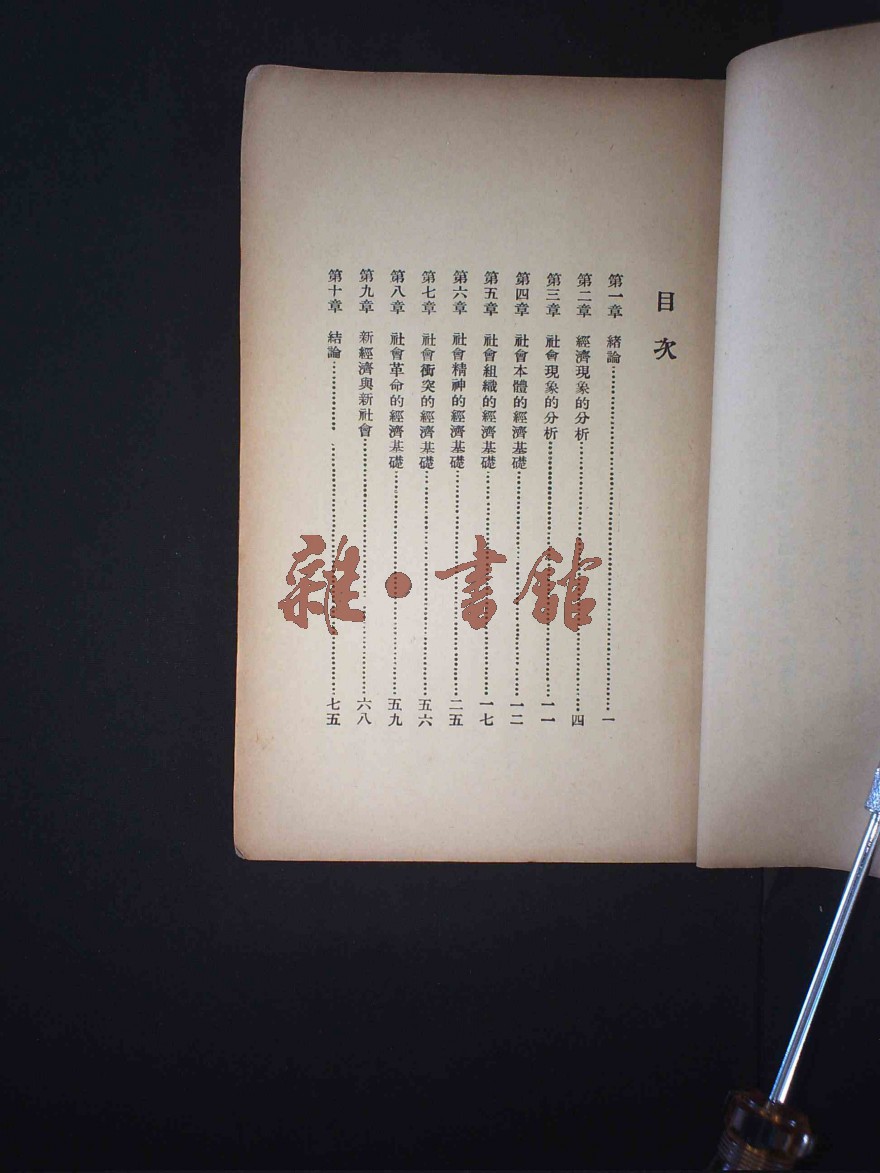 目次
第一章 緒論……一
第二章 經濟現象的分析……四
第三章 社會現象的分析……一一
第四章 社會本體的經濟基礎……一二
第五章 社會組織的經濟基礎……一七
第六章 社會精神的經濟基礎……二五
第七章 社會衝突的經濟基礎……五六
第八章 社會革命的經濟基礎……五九
第九章 新經濟與新社會……六八
第十章 結論……七五
雜·書館